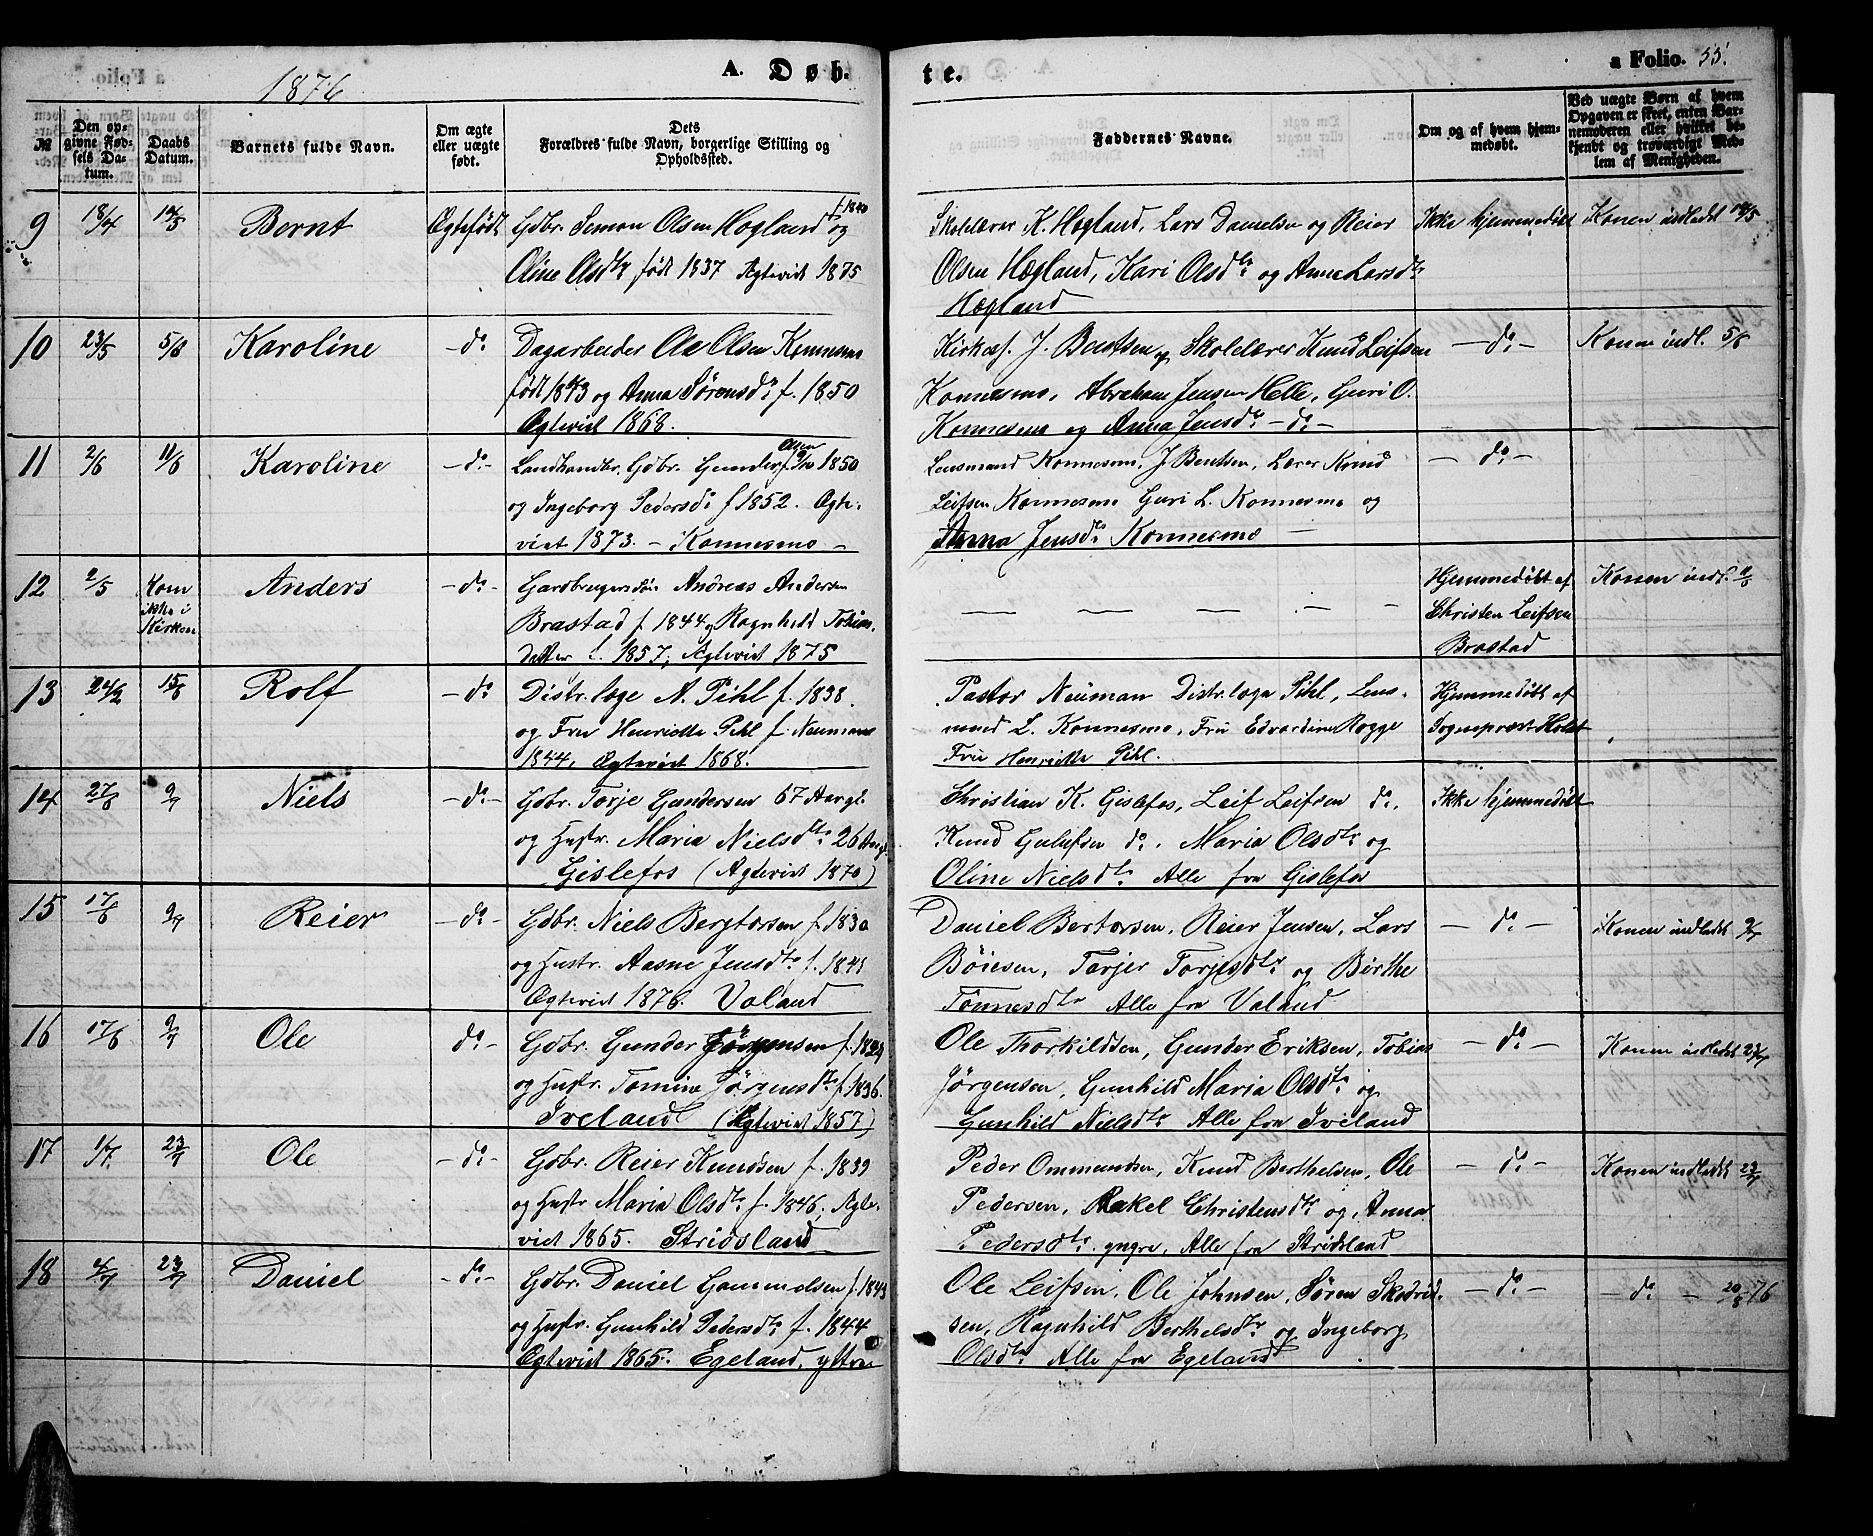 1876
A. Døb
te.
a Folio. 55.
№
Den opgivne Fødsels Datum.
Daabs Datum.
Barnets fulde Navn.
Om ægte eller uægte født.
Dets Forældres fulde Navn, borgerlige Stilling og Opholdssted.
Faddernes Navne.
Om og af hvem hjemmedøbt.
Ved uægte Børn af hvem Opgaven er skeet, enten Barnemoderen eller hvilket bekjendt og troværdigt Medlem af Menigheden.
9 18/4 14/5 Bernt Ægtefødt Gdbr. Simon Olsen Høgland f. 1840 og
Oline Olsdtr født 1837 Ægtevidt 1875
Skolelærer K. Høgland, Lars Danielsen og Reier
Olsen Høgland, Kari Olsdtr og Anna Larsdtr
Høgland
Ikke hjemmedøbt
Konen indledet 14/5
10 23/5 5/6 Karoline - do - Dagarbeider Ole Olsen Konnesmo
født 1843 og Anna Sørensdtr f. 1850
Ægteviet 1868.
Kirkes. J. Bentsen og Skolelærer Knud Leifsen
Konnesmo, Abraham Jensen Helle, Guri O.
Konnesmo og Anna Jensdtr - do -
- do -
Konen indl. 5/6
11 2/6 11/6 Karoline - do - Landhandler Gdbr. Gunder Olsen f. 1850
og Ingeborg Pedersdtr f 1852. Ægte-
viet 1873. - Konnesmo -
Lensmand Konnesmo, J Bentsen, Lærer Knud
Leifsen Konnesmo Guri L. Konnesmo og
Anna Jensdtr Konnesmo -
- do -
12 2/5 Kom ikke i Kirken Anders - do - Gaardbrugersøn Andreas Andersen
Brastad f. 1844 og Ragnhild Tobias-
datter f. 1857, Ægteviet 1875
— — — — -
Hjemmedøbt af
Christen Leifsen
Brastad
Konen indl. 11/6
13 24/2 15/6 Rolf - do Distr. læge A. Pihl f. 1838.
og Fru Henriette Pihl f. Neumann
1844, Ægteviet 1868.
Pastor Neuman Distr. læge Pihl, Lens-
mand L. Konnesmo, Fru Edvardine Rogge
Fru Henriette Pihl.
Hjemmedøbt af
Sognepræst Holst
14 27/6 9/7 Niels - do - Gdbr. Torje Gundersen 67 Aargl.
og Hustr. Maria Nielsdtr 26 Aargl.
Gislefos (Ægteviet 1870)
Christian K. Gislefos, Leif Leifsen do,
Knud Gulufsen do. Maria Olsdtr og
Oline Nielsdtr Alle fra Gislefos
Ikke hjemmedøbt
15 17/6 9/7 Reier - do - Gdbr. Niels Bergtorsen f. 1830
og Hustr. Aasne Jensdtr f. 1841
Ægteviet 1876. Valand
Daniel Bertorsen, Reier Jensen, Lars
Böiesen, Torjer Torjesdtr og Börthe
Tönnesdtr Alle fra Valand
- do -
Konen indledet 9/7
16 17/6 9/7 Ole do - Gdbr. Gunder Jörgensen f. 1824
og Hustr. Tomine Jörgensdtr f. 1836.
Iveland (Ægteviet 1857)
Ole Thorkildsen, Gunder Eriksen, Tobias
Jörgensen, Gunhild Maria Olsdtr og
Gunhild Nielsdtr Alle fra Iveland
- do -
Konen indledet 23/7
17 1/7. 23/7 Ole - do - Gdbr. Reier Knudsen f. 1839
og Hustr Maria Olsdtr f. 1846, Ægte-
viet 1865. Stridsland
Peder Ommundsen, Knud Berthelsen, Ole
Pedersen, Rakel Christensdtr og Anna
Pedersdtr yngre, Alle fra Stridsland
- do -
Konen indledet 23/7
18 4/7 23/7 Daniel - do - Gdbr. Daniel Gammelsen f. 1843
og Hustr. Gunhild Pedersdtr f. 1844
Ægteviet 1865. Egeland, yttre
Ole Leifsen, Ole Johnsen, Søren Skedrid-
sen, Ragnhild Berthelsdtr og Ingeborg
Olsdtr Alle fra Egeland
- do -
- do - 20/8 76